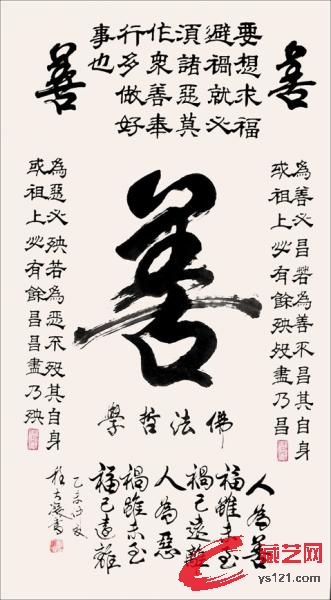 善
要想求福
避禍就必
須諸惡莫
作衆善奉
行多做好
事也
善
為善必昌若為善不昌其自身
或祖上必有餘殃殃盡乃昌
善
為惡必殃若為惡不殃其自身
或祖上必有餘昌昌盡乃殃
佛法哲學
人為善
福雖未至
禍已遠離
人為惡
禍雖未至
福已遠離
乙未
藏艺网
ys121.com